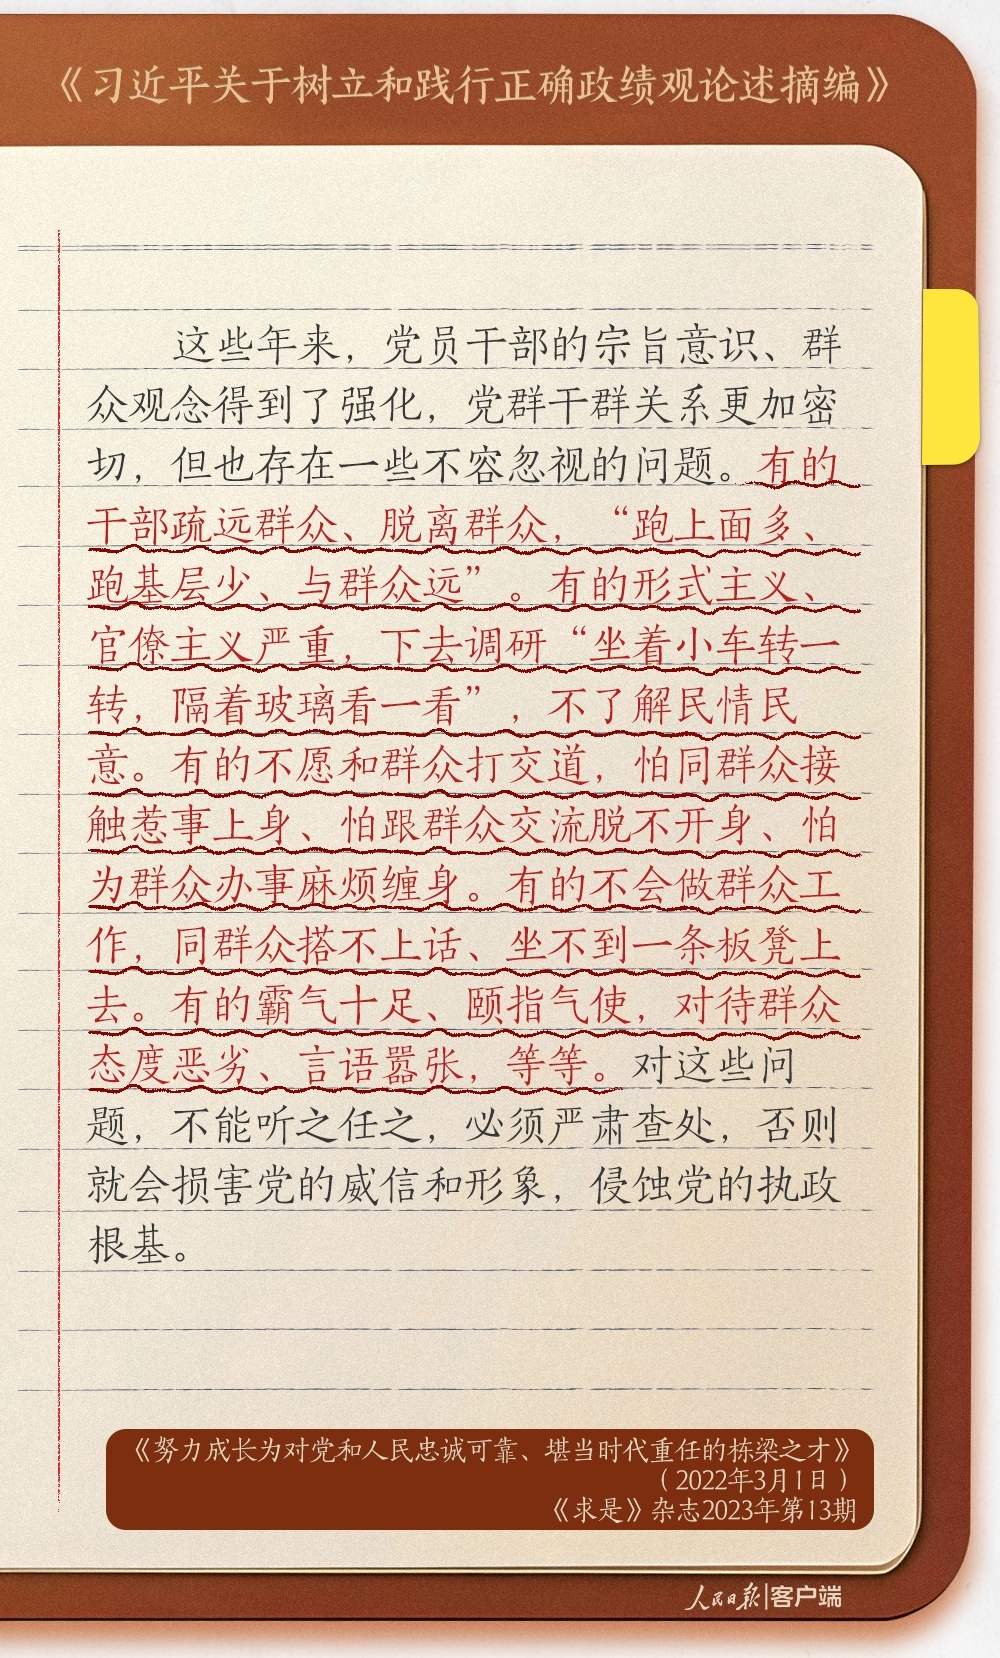 《习近平关于树立和践行正确政绩观论述摘编》
这些年来，党员干部的宗旨意识、群
众观念得到了强化，党群干群关系更加密
切，但也存在一些不容忽视的问题。有的
干部疏远群众、脱离群众，“跑上面多、
跑基层少、与群众远”。有的形式主义、
官僚主义严重，下去调研“坐着小车转一
转，隔着玻璃看一看”，不了解民情民
意。有的不愿和群众打交道，怕同群众接
触惹事上身、怕跟群众交流脱不开身、怕
为群众办事麻烦缠身。有的不会做群众工
作，同群众搭不上话、坐不到一条板凳上
去。有的霸气十足、颐指气使，对待群众
态度恶劣、言语嚣张，等等。对这些问
题，不能听之任之，必须严肃查处，否则
就会损害党的威信和形象，侵蚀党的执政
根基。
《努力成长为对党和人民忠诚可靠、堪当时代重任的栋梁之才》
（2022年3月1日）
《求是》杂志2023年第13期
人民日报|客户端